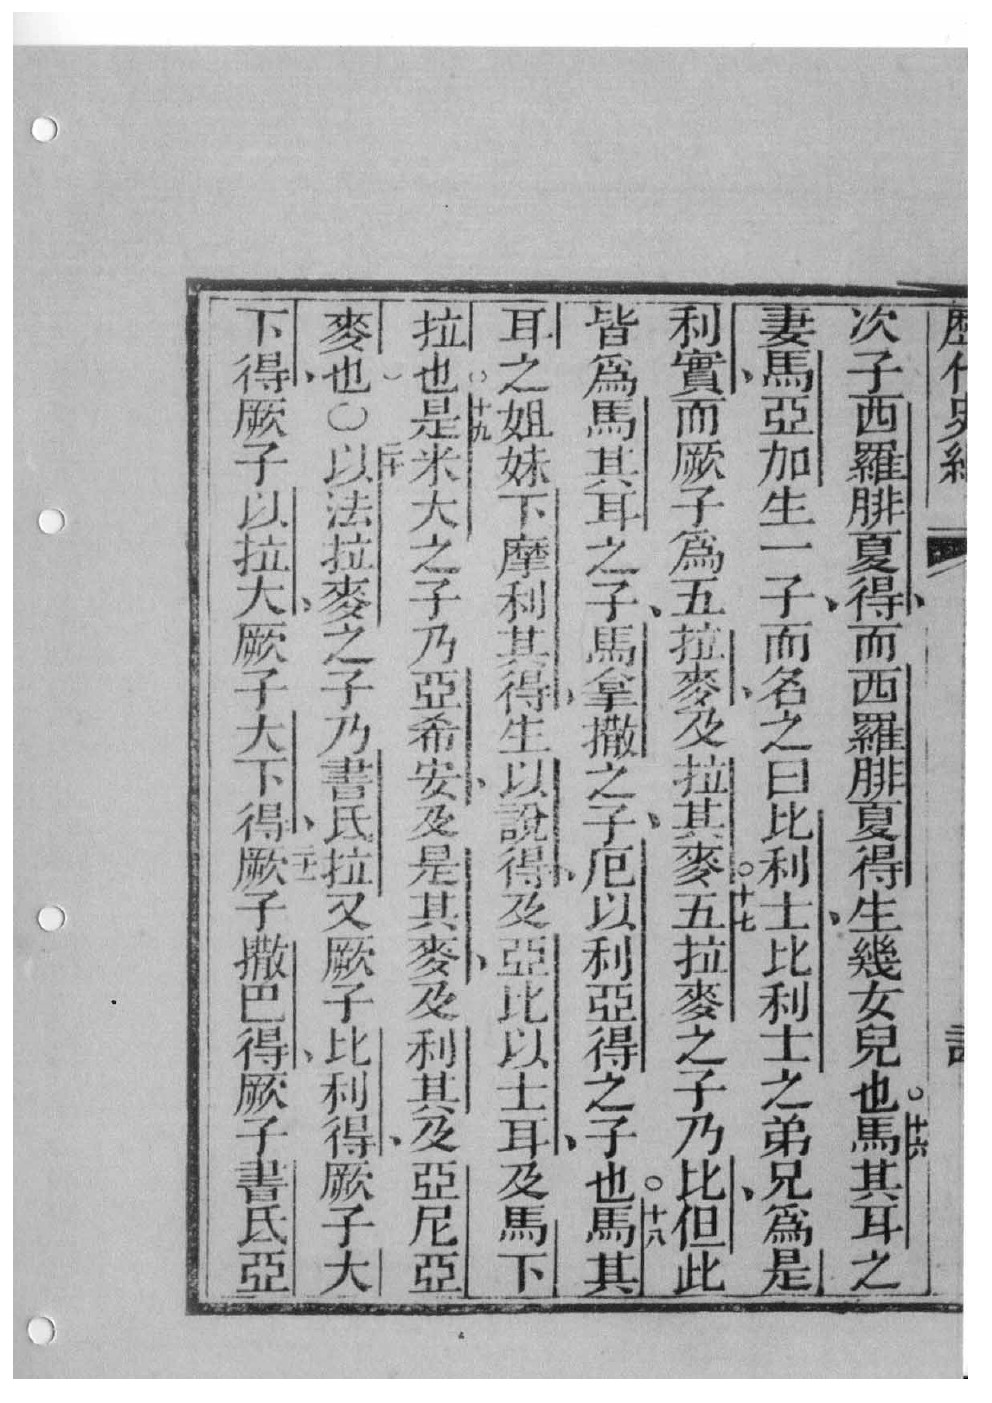 歷代史紀
次子西羅腓夏得、而西羅腓夏得生幾女兒也。十六馬其耳之
妻馬亞加生一子、而名之曰比利士、比利士之弟兄爲是
利實、而厥子爲五拉麥、及拉其麥。十七五拉麥之子乃比但、此
皆爲馬其耳之子、馬拿撒之子、厄以利亞得之子也。十八馬其
耳之姐妹下摩利其得、生以說得、及亞比以士耳、及馬下
拉也。十九是米大之子乃亞希安、及是其麥、及利其、及亞尼亞
麥也〇二十以法拉麥之子乃書氏拉、又厥子比利得、厥子大
下得、厥子以拉大、厥子大下得、二十一厥子撒巴得、厥子書氏亞